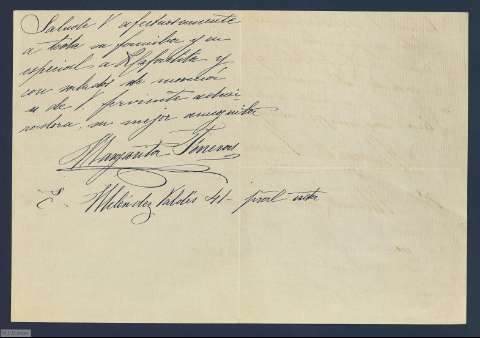 Salude V. afectuosamente
a toda su familia y en
especial a Rafaelita y
con saludos de mamá
es de V. ferviente admi-
radora, su mejor amiguita
Margarita
Meléndez Valdés 41-